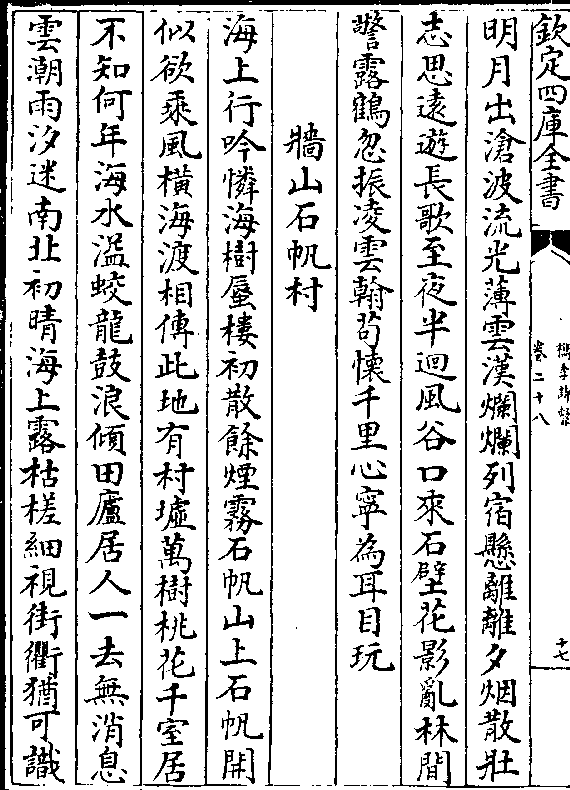 欽定四庫全書
檇李詩繫
卷二十八
十七
明月出滄波流光薄雲漢爛爛列宿懸離離夕烟散壯
志思遠遊長歌至夜半迴風谷口來石壁花影亂林間
警露鶴忽振凌雲翰苟懷千里心寧為耳目玩
牆山石帆村
海上行吟憐海樹蜃樓初散餘煙霧石帆山上石帆開
似欲乘風橫海渡相傳此地有村墟萬樹桃花千室居
不知何年海水溢蛟龍鼓浪傾田廬居人一去無消息
雲潮雨汐迷南北初晴海上露枯槎細視街衢猶可識